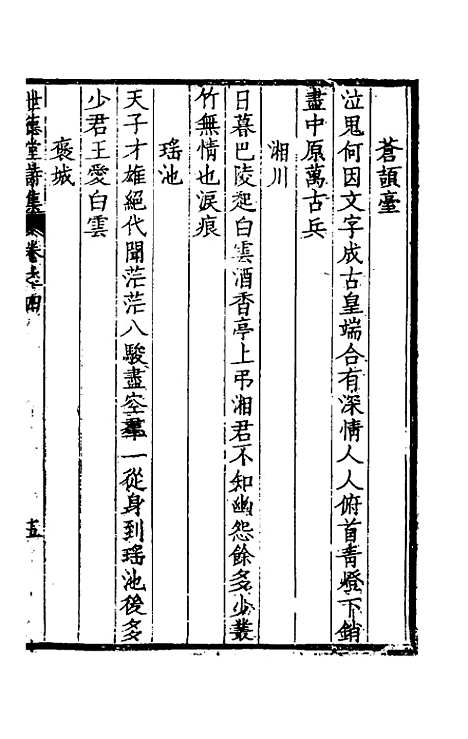 蒼頡臺
泣鬼何因文字成古皇端合有深情人人俯首青燈下銷
盡中原萬古兵
湘川
日暮巴陵起白雲酒香亭上弔湘君不知幽怨餘多少叢
竹無情也淚痕
瑤池
天子才雄絕代聞茫茫八駿盡空羣一從身到瑤池後多
少君王愛白雲
褒城
世德堂詩集 卷之四 五